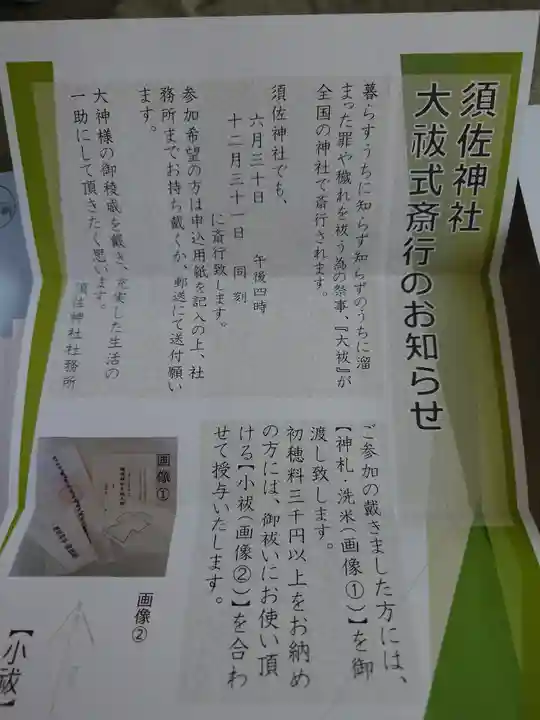 須佐神社
大祓式斎行のお知らせ
暮らすうちに知らず知らずのうちに溜
まった罪や穢れを祓う為の祭事、『大祓』が
全国の神社で斎行されます。
須佐神社でも、
六月三十日 午後四時
十二月三十一日 同刻
に斎行致します。
参加希望の方は申込用紙を記入の上、社
務所までお持ち戴くか、郵送にて送付願い
ます。
大神様の御稜威を戴き、充実した生活の
一助にして頂きたく思います。
須佐神社社務所
ご参加の戴きました方には、
【神札・洗米（画像①）】を御
渡し致します。
初穂料三千円以上をお納め
の方には、御祓いにお使い頂
ける【小祓（画像②）】を合わ
せて授与いたします。
画像①
画像②
【小祓】